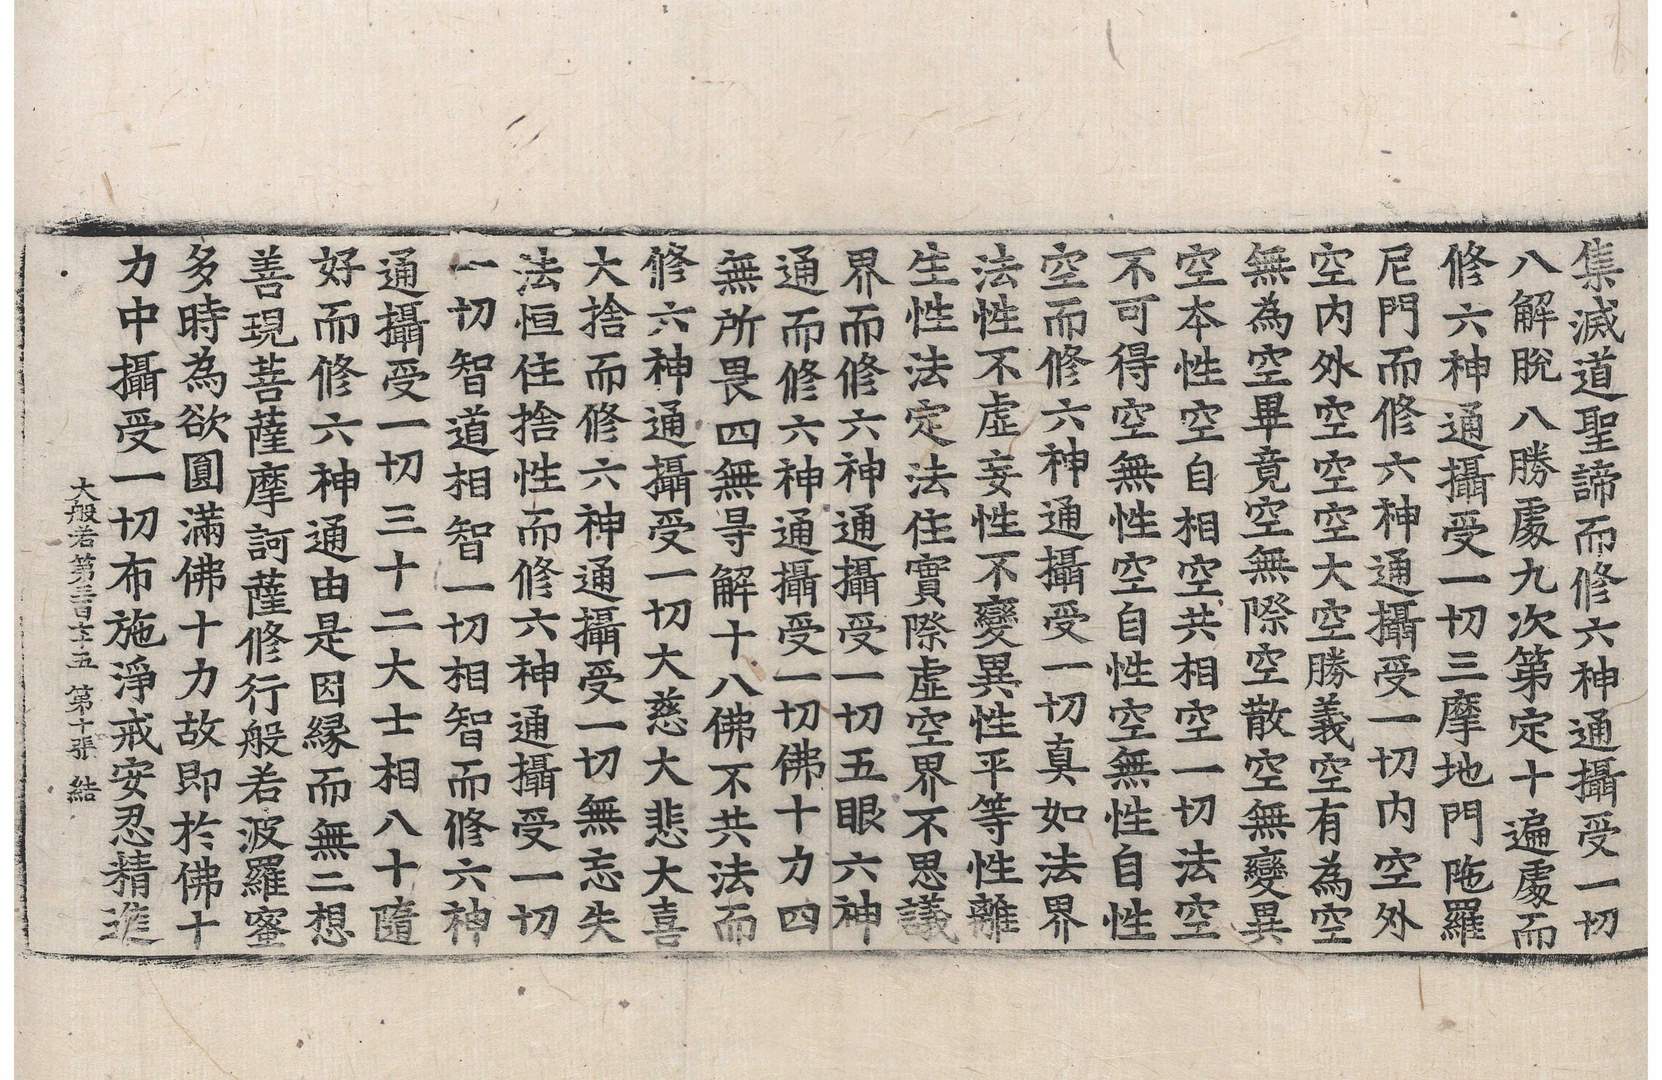 集滅道聖諦而修六神通攝受一切
八解脫八勝處九次第定十遍處而
修六神通攝受一切三摩地門陁羅
尼門而修六神通攝受一切內空外
空內外空空空大空勝義空有為空
無為空畢竟空無際空散空無變異
空本性空自相空共相空一切法空
不可得空無性空自性空無性自性
空而修六神通攝受一切真如法界
法性不虛妄性不變異性平等性離
生性法定法住實際虛空界不思議
界而修六神通攝受一切五眼六神
通而修六神通攝受一切佛十力四
無所畏四無㝵解十八佛不共法而
修六神通攝受一切大慈大悲大喜
大捨而修六神通攝受一切無忘失
法恒住捨性而修六神通攝受一切
一切智道相智一切相智而修六神
通攝受一切三十二大士相八十隨
好而修六神通由是因緣而無二想
善現菩薩摩訶薩修行般若波羅蜜
多時為欲圓滿佛十力故即於佛十
力中攝受一切布施淨戒安忍精進
大般若第三百六十五 第十張 結